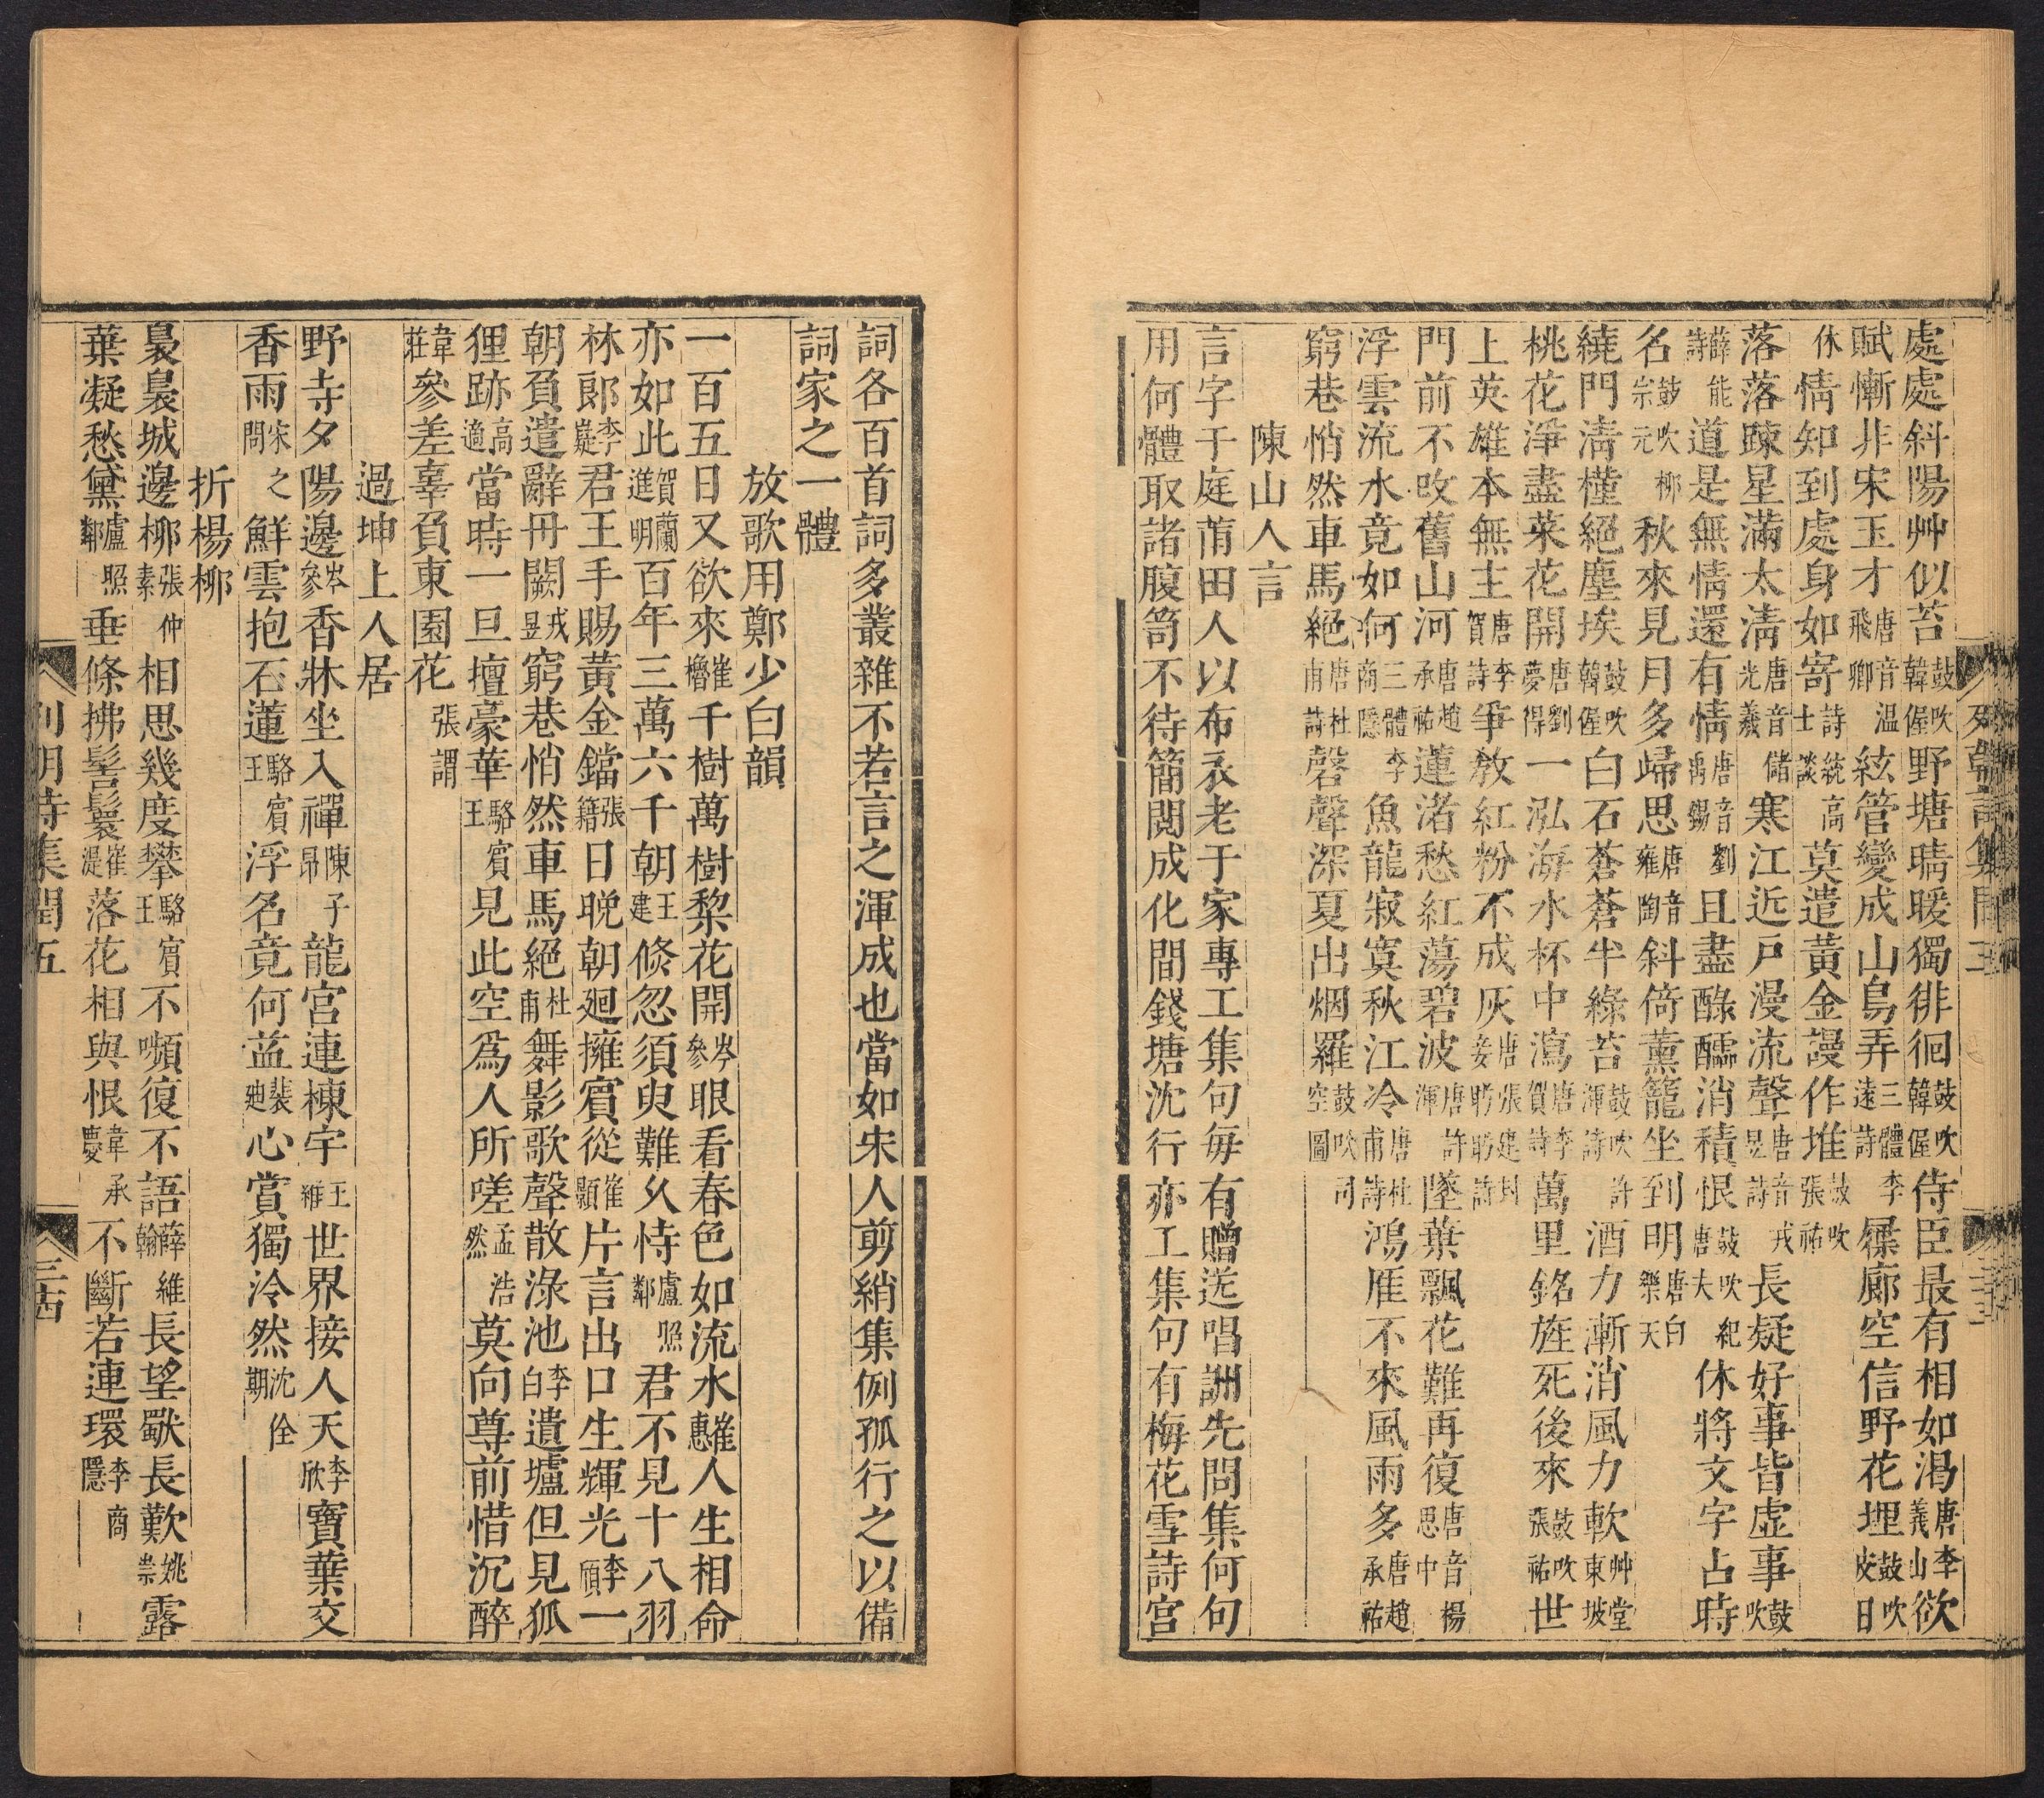 處處斜陽艸似苔鼓吹韓偓野塘晴暖獨徘徊鼓吹韓偓侍臣最有相如渴唐李義山欲
賦慚非宋玉才唐音溫飛卿絃管變成山鳥弄三體詩李遠屧廊空信野花埋鼓吹皮日
休情知到處身如寄詩統高士談莫遣黃金謾作堆鼓吹張祐
落落疎星滿太淸唐音儲光羲寒江近戶漫流聲唐音戎昱詩長疑好事皆虛事鼓吹
薛能詩道是無情還有情唐音劉禹錫且盡醁醹消積恨鼓吹唐大紀休將文字占時
名鼓吹柳宗元秋來見月多歸思唐音陶雍斜倚薰籠坐到明唐白樂天
繞門淸槿絕塵埃鼓吹韓偓白石蒼蒼半綠苔鼓吹許渾詩酒力漸消風力軟艸堂東坡
桃花淨盡菜花開唐劉夢得一泓海水杯中瀉唐李賀詩萬里銘旌死後來鼓吹張祐世
上英雄本無主唐李賀詩爭敎紅粉不成灰唐張建封妾盻盻詩
門前不改舊山河唐趙承祐蓮渚愁紅蕩碧波唐許渾墜葉飄花難再復唐音楊思中
浮雲流水竟如何三體李商隱魚龍寂寞秋江冷唐杜甫詩鴻雁不來風雨多唐趙承祐
窮巷悄然車馬絕唐杜甫詩磬聲深夏出烟羅鼓吹司空圖
陳山人言
言字于庭莆田人以布衣老于家專工集句每有贈送唱詶先問集何句
用何體取諸腹笥不待簡閱成化間錢塘沈行亦工集句有梅花雪詩宮
詞各百首詞多叢雜不若言之渾成也當如宋人剪綃集例孤行之以備
詞家之一體
放歌用鄭少白韻
一百五日又欲來崔櫓千樹萬樹棃花開岑參眼看春色如流水崔惠人生相命
亦如此賀蘭進明百年三萬六千朝王建倏忽須臾難久恃盧照鄰君不見十八羽
林郞李嶷君王手賜黃金鐺張籍日晚朝廻擁賓從崔顥片言出口生輝光李頎一
朝負遣辭丹闕戎昱窮巷悄然車馬絕杜甫舞影歌聲散淥池李白遺墟但見狐
狸跡高適當時一旦擅豪華駱賓王見此空爲人所嗟孟浩然莫向尊前惜沉醉
韋莊參差辜負東園花張謂
過坤上人居
野寺夕陽邊岑參香牀坐入禪陳子昂龍宮連棟宇王維世界接人天李欣寶葉交
香雨宋之問鮮雲抱石蓮駱賓王浮名竟何益裴廸心賞獨泠然沈佺期
折楊柳
裊裊城邊柳張仲素相思幾度攀駱賓王不嚬復不語薛維翰長望歇長歎姚崇露
葉凝愁黛盧照鄰垂條拂髻鬟崔湜落花相與恨韋承慶不斷若連環李商隱
列朝詩集閏五 三四